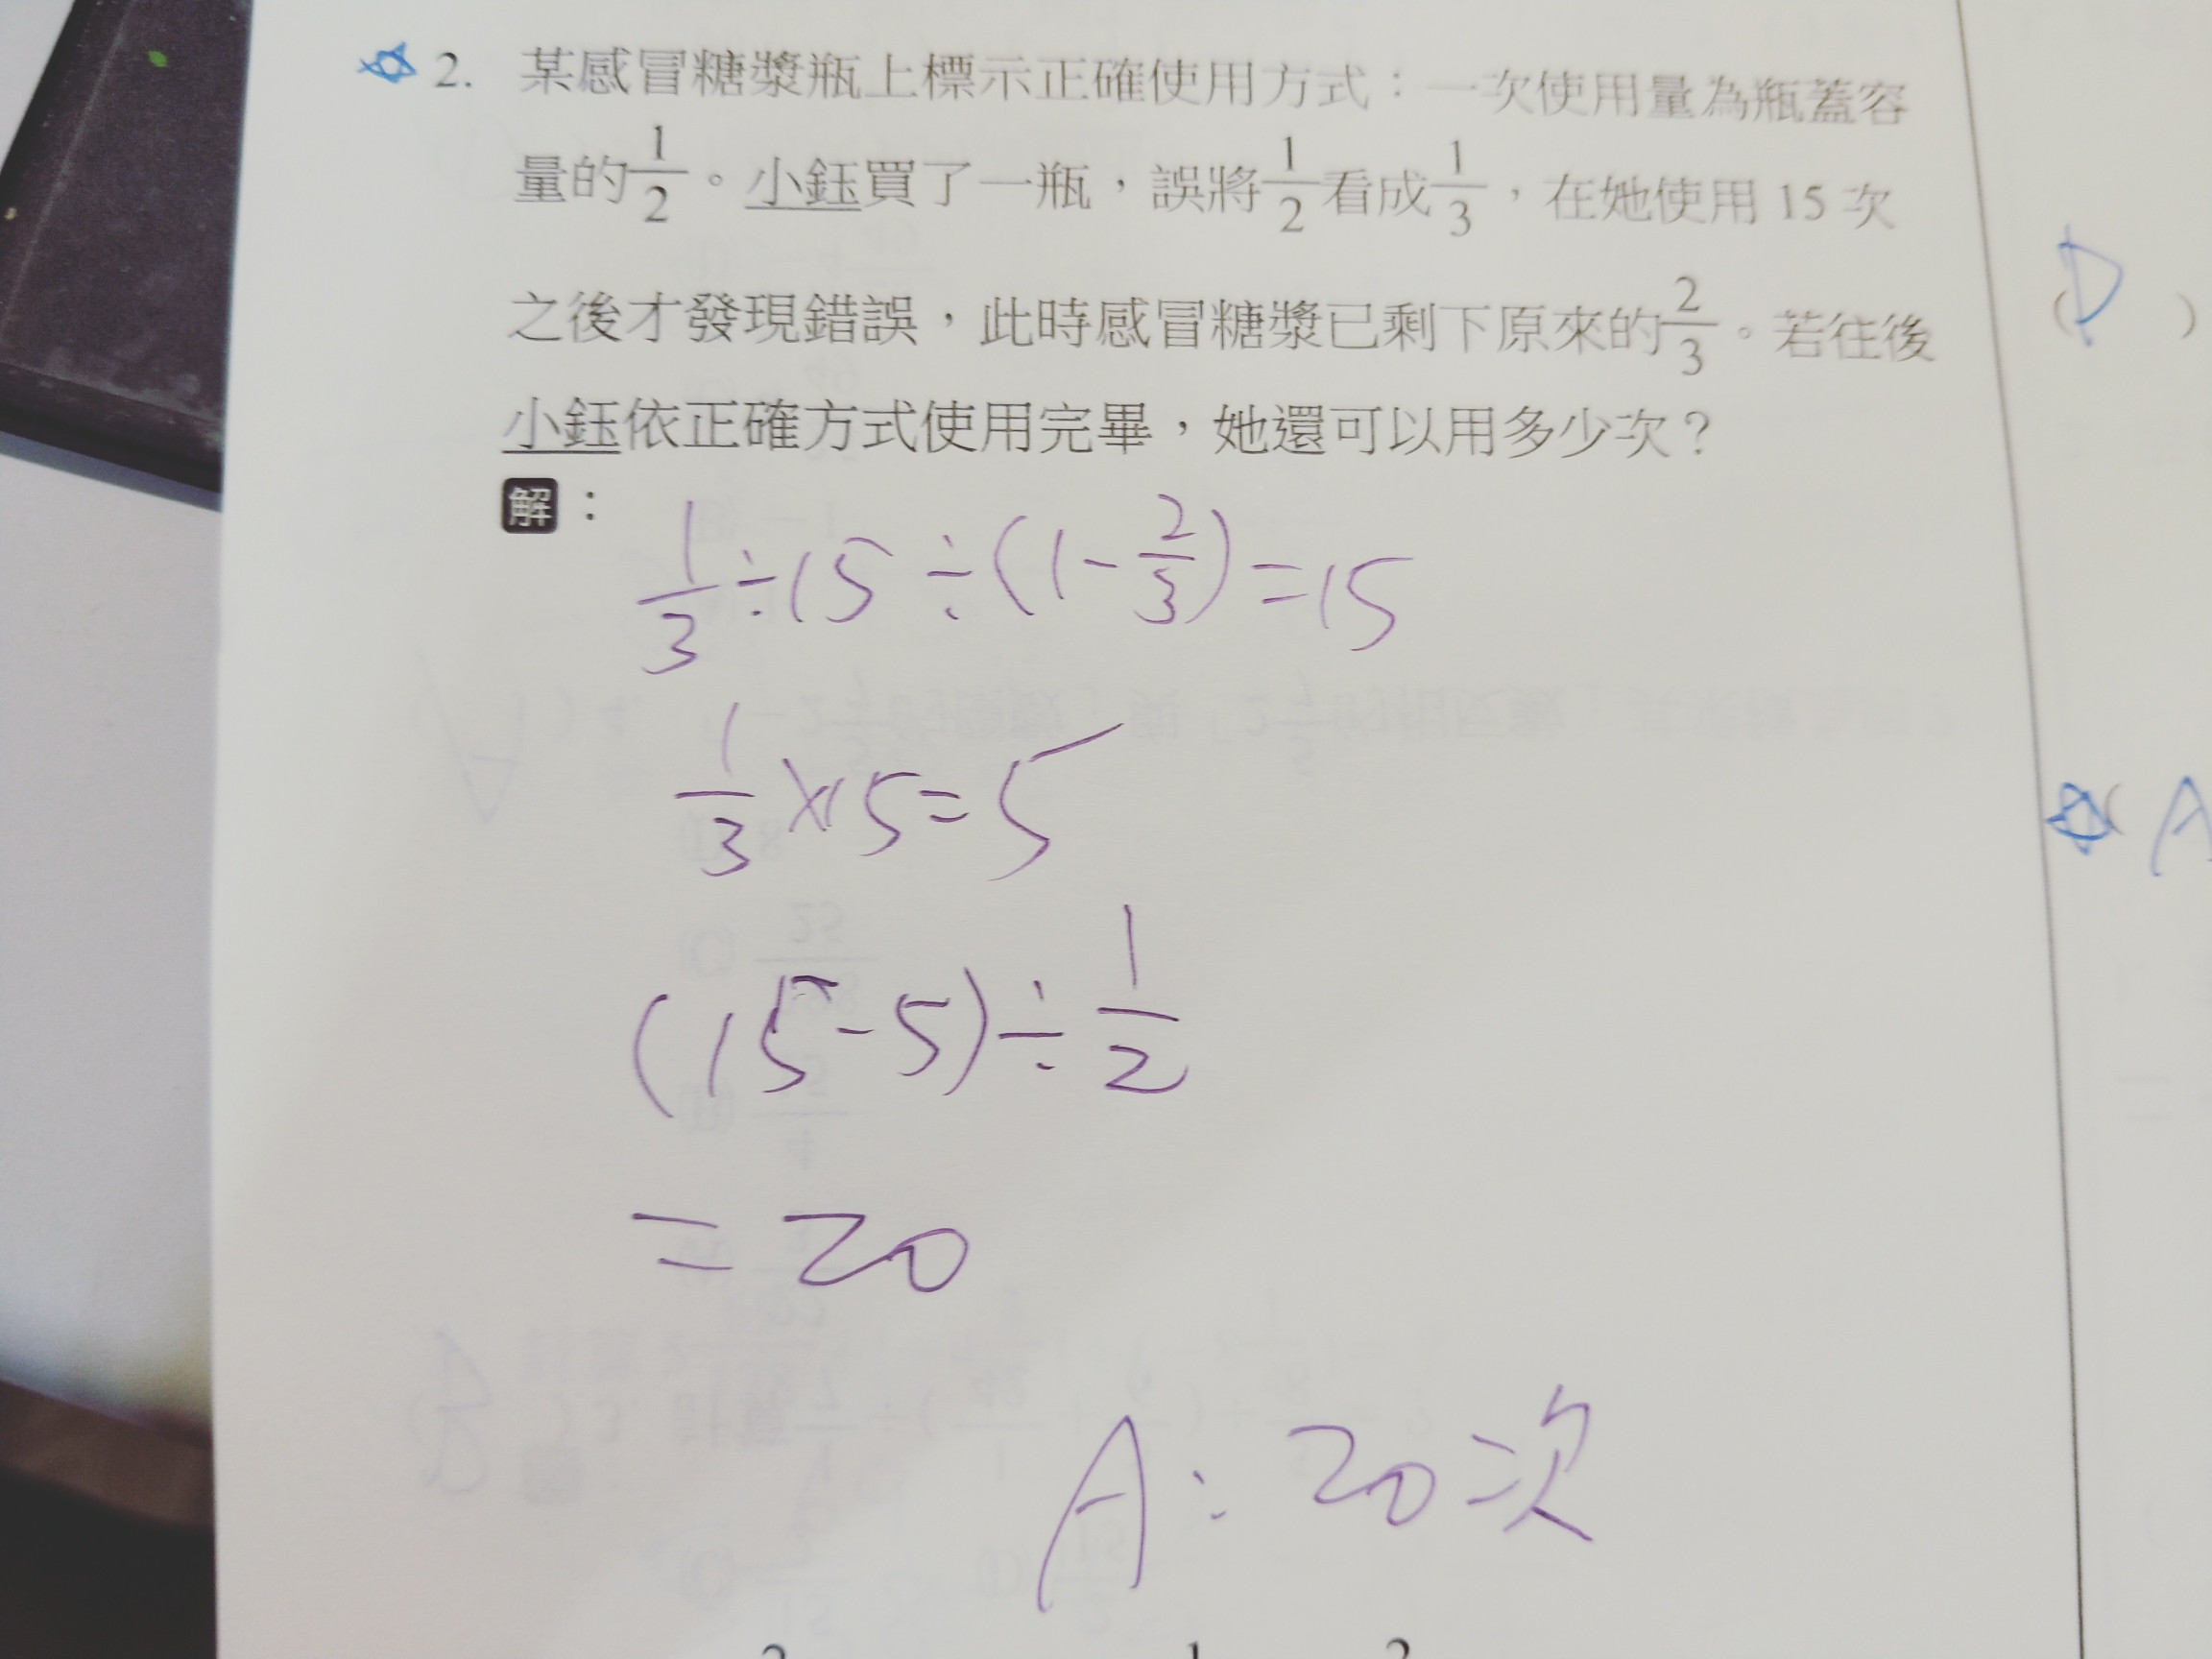 2. 某感冒糖漿瓶上標示正確使用方式：一次使用量為瓶蓋容
量的1/2。小鈺買了一瓶，誤將1/2看成1/3，在她使用 15 次
之後才發現錯誤，此時感冒糖漿已剩下原來的2/3。若往後
小鈺依正確方式使用完畢，她還可以用多少次？
解：
1/3÷15÷(1-2/3)=15
1/3×15=5
(15-5)÷1/2
=20
A：20次
(D)
(A